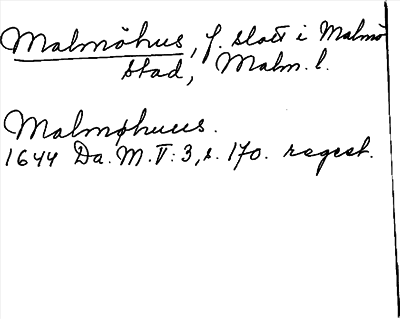 Malmöhus, f. slott i Malmö
stad, Malm. l.
Malmøhuus.
1644 Da. M. V: 3, s. 170. regest.